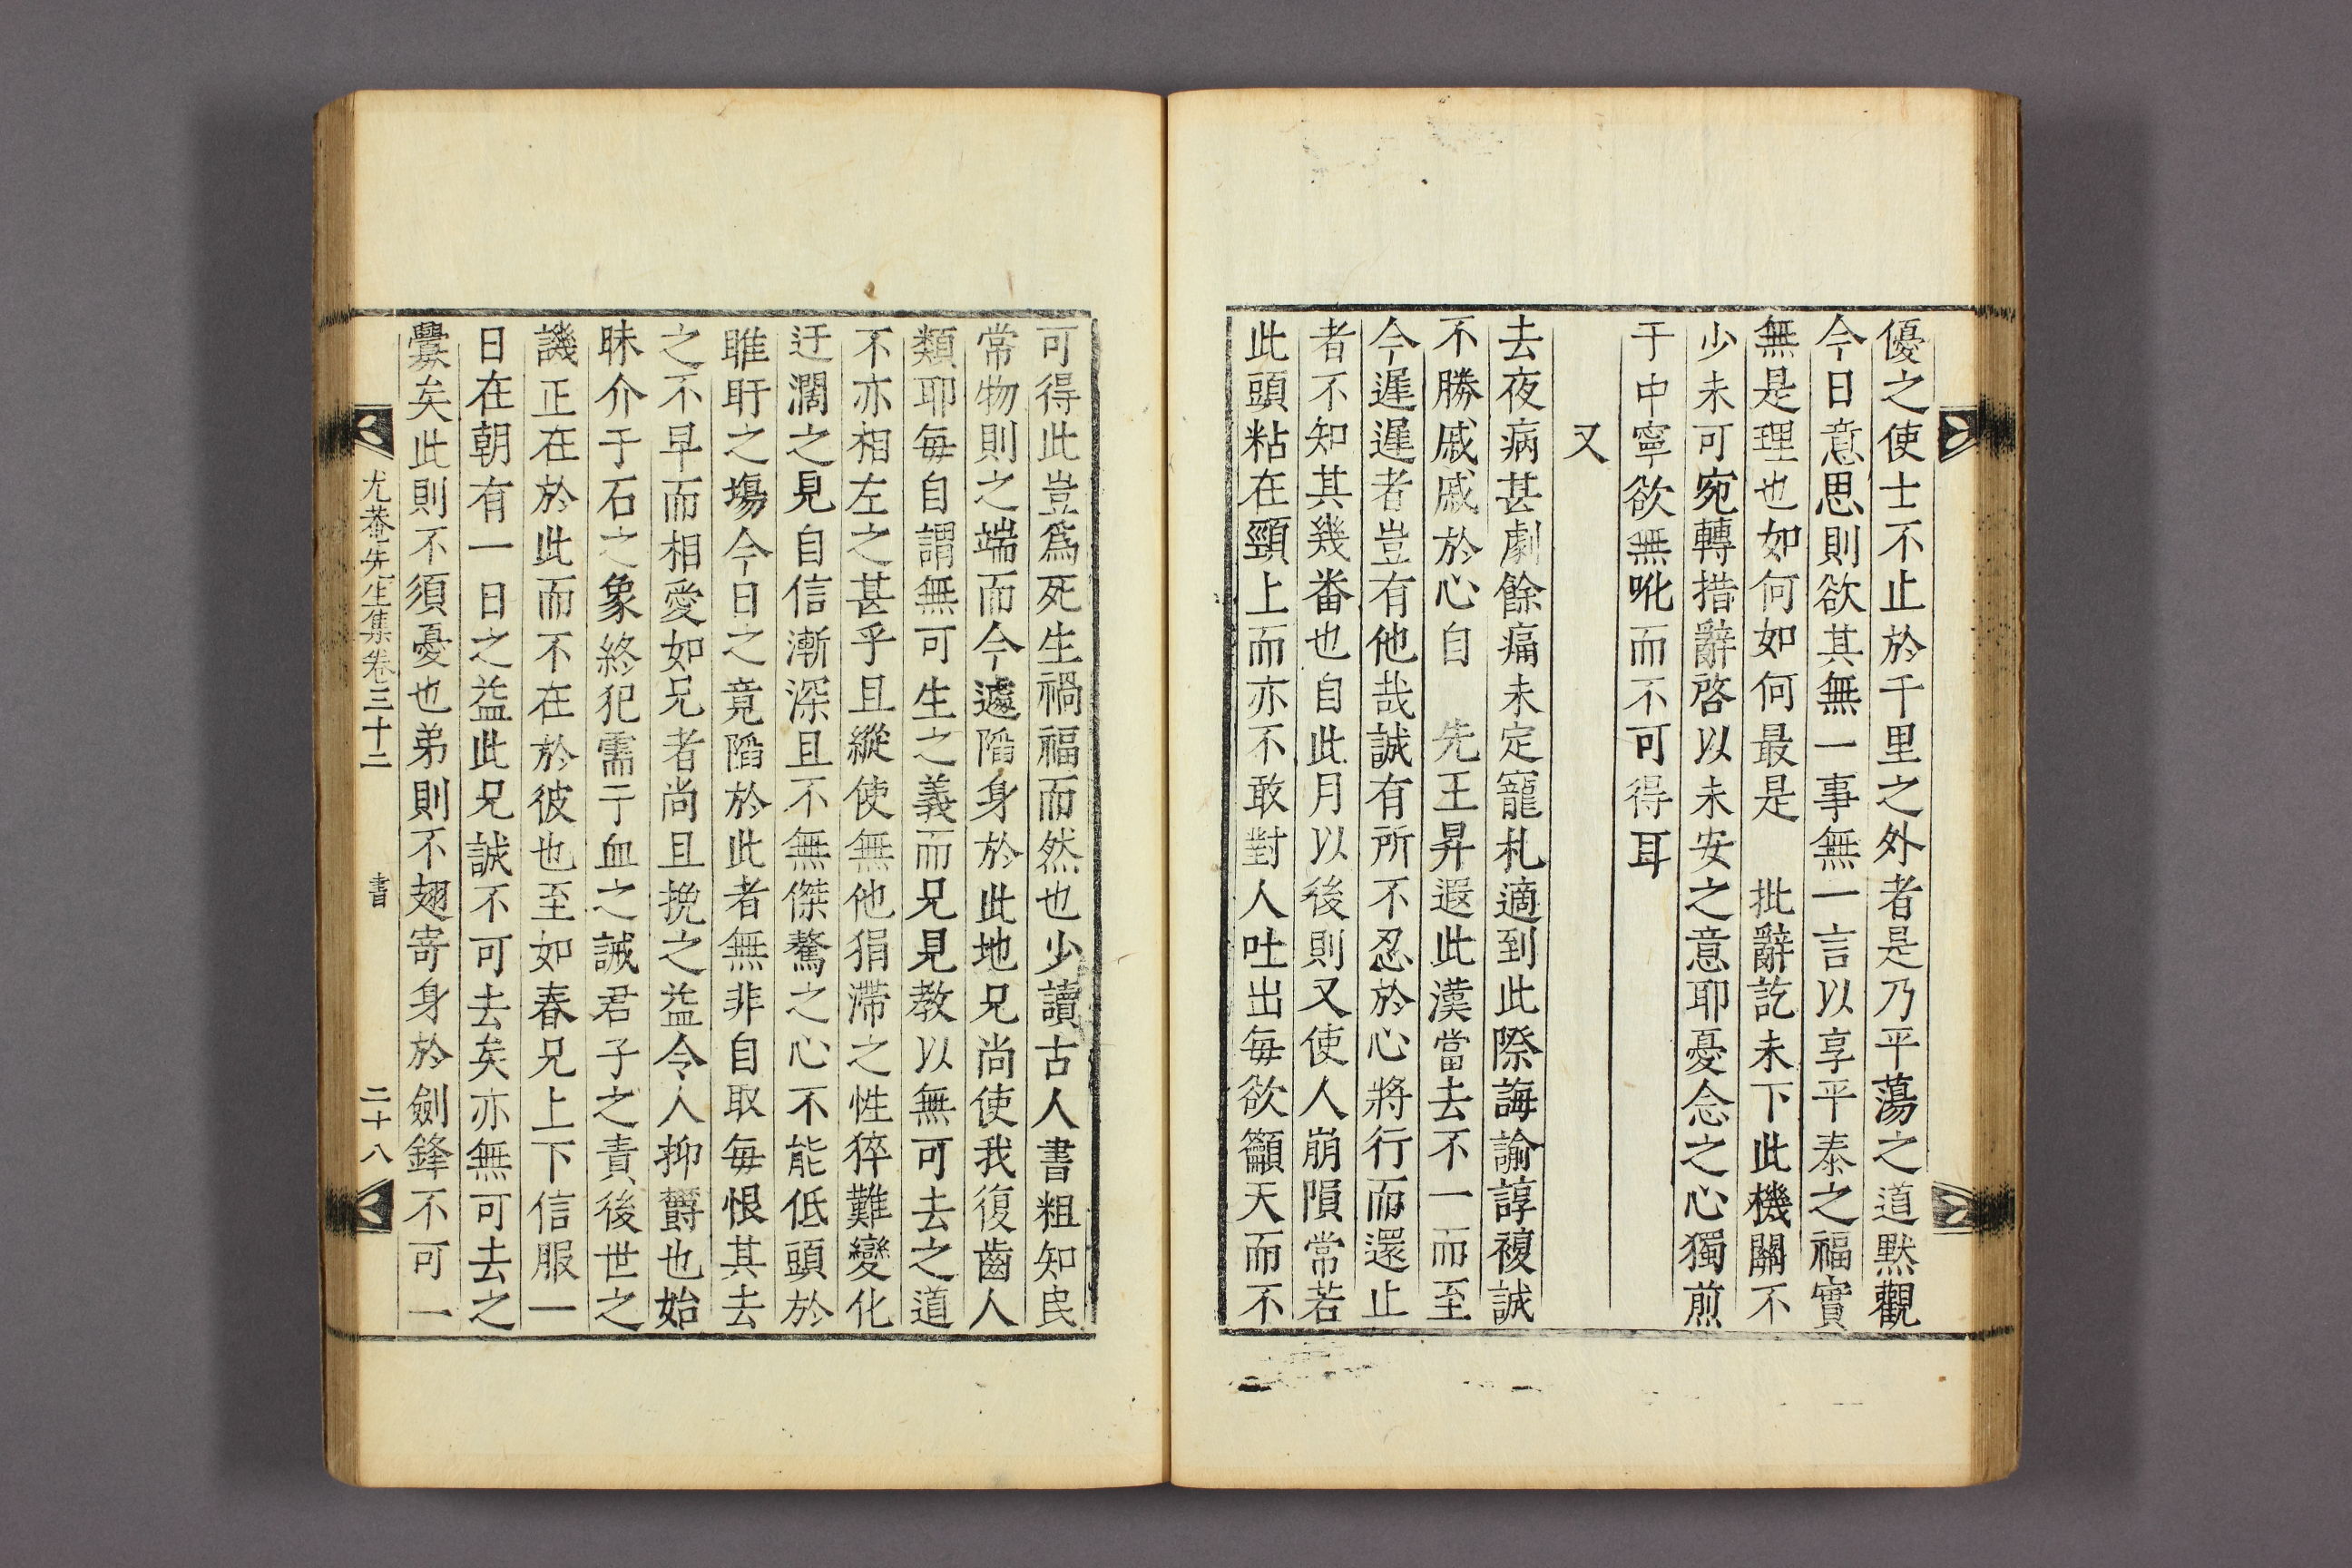 優之使士不止於千里之外者是乃平蕩之道默觀
今日意思則欲其無一事無一言以享平泰之福實
無是理也如何如何最是　批辭訖未下此機關不
少未可宛轉措辭啓以未安之意耶憂念之心獨煎
于中寧欲無吪而不可得耳
又
去夜病甚劇餘痛未定寵札適到此際誨諭諄複誠
不勝戚戚於心自　先王昇遐此漢當去不一而至
今遲遲者豈有他哉誠有所不忍於心將行而還止
者不知其幾番也自此月以後則又使人崩隕常若
此頭粘在頸上而亦不敢對人吐出每欲籲天而不
可得此豈爲死生禍福而然也少讀古人書粗知民
常物則之端而今遽陷身於此地兄尚使我復齒人
類耶每自謂無可生之義而兄見教以無可去之道
不亦相左之甚乎且縱使無他狷滯之性猝難變化
迂濶之見自信漸深且不無傑驁之心不能低頭於
睢盱之場今日之竟陷於此者無非自取每恨其去
之不早而相愛如兄者尚且挽之益令人抑欝也始
昧介于石之象終犯需于血之誡君子之責後世之
譏正在於此而不在於彼也至如春兄上下信服一
日在朝有一日之益此兄誠不可去矣亦無可去之
釁矣此則不須憂也弟則不翅寄身於劍鋒不可一
尤菴先生集卷三十二　書　二十八